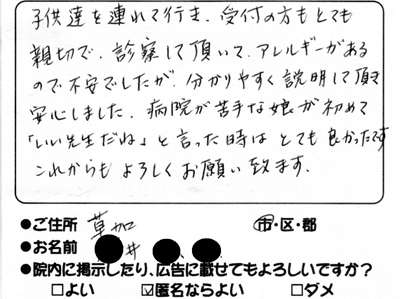 子供達を連れて行き、受付の方もとても
親切で、診察して頂いて、アレルギーがある
ので不安でしたが、分かりやすく説明して頂き
安心しました。病院が苦手な娘が初めて
「いい先生だね」と言った時はとても良かったです
これからもよろしくお願い致します。
●ご住所 草加 市・区・郡
●お名前 井
●院内に掲示したり、広告に載せてもよろしいですか?
□よい ☑匿名ならよい □ダメ